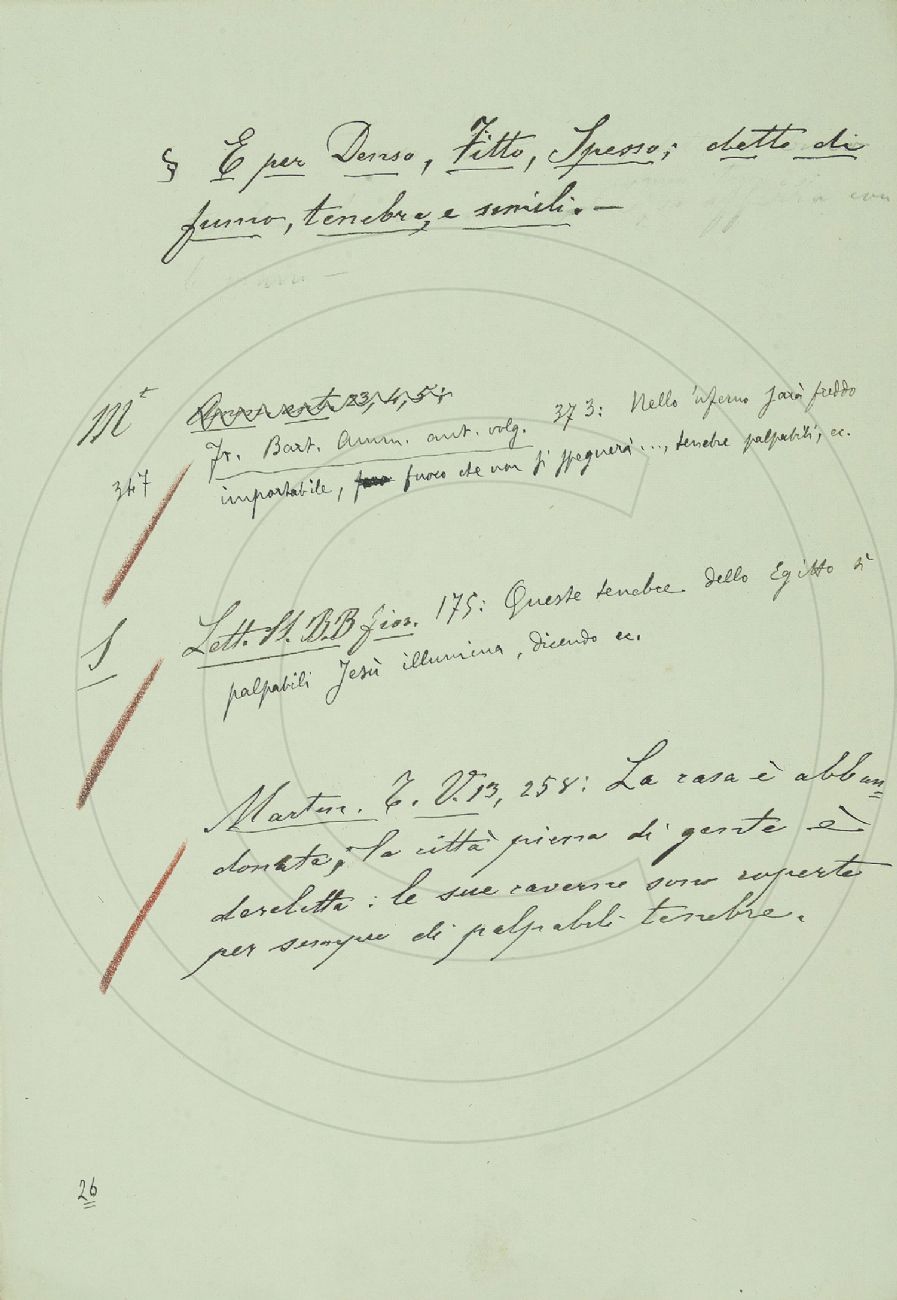 § E per Denso, Fitto, Spesso; detto di
fumo, tenebre, e simili. —
Mt
Fr. Bart. Amm. ant. volg. 373: Nello 'nferno farà freddo
347
importabile, fuoco che non si spegnerà..., tenebre palpabili, ec.
S
Lett. SS. BB fior. 175: Queste tenebre dello Egitto sì
palpabili Jesù illumina, dicendo ec.
Martin. T. V. 13, 258: La casa è abban
donata; la città piena di gente è
derelitta: le sue caverne sono coperte
per sempre di palpabili tenebre.
26